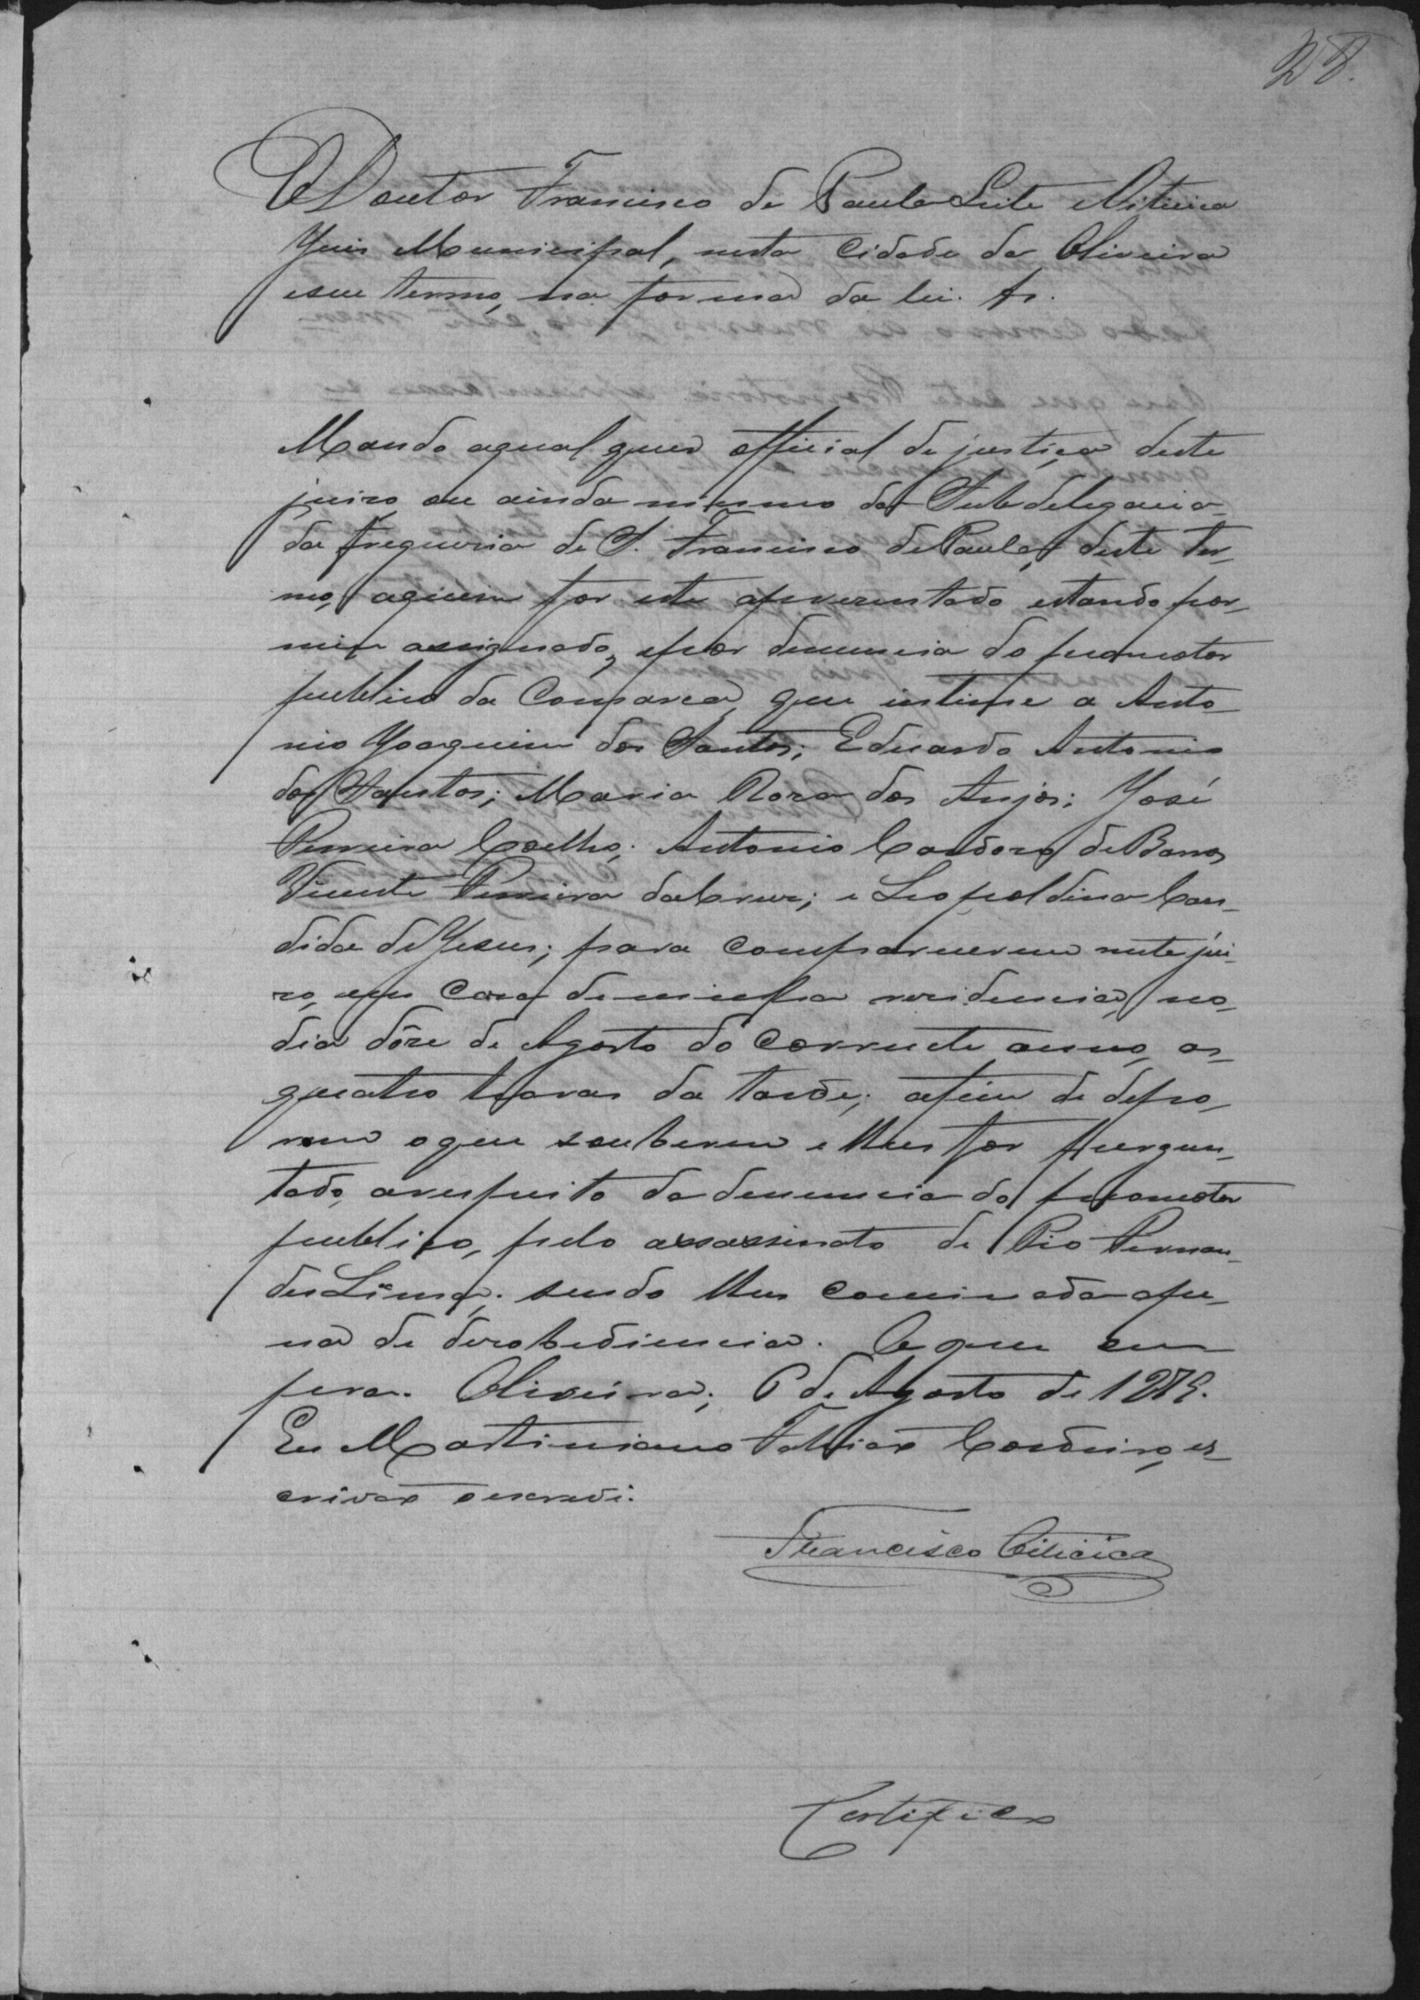 28.
O Doutor Francisco de Paula Leite Oiticica
Juis Municipal, nesta Cidade de Oliveira
e seu termo, na forma da lei. &.
Mando aqual quer official de justiça deste
juizo, ou ainda mesmo da Subdelegacia
da freguezia de S. Francisco de Paula, deste ter-
mo, aquem for este aprezentado estando por
mim assignado, e por denuncia do promotor
publico da Comarca, que intime a Anto-
nio Joaquim dos Santos; Eduardo Antonio
dos Santos; Maria Roza dos Anjos; José
Pereira Coelho; Antonio Cardozo de Barros,
Vicente Pereira da Cruz; e Leopoldina Can-
dida de Jesus; para comparecerem neste jui-
zo, em Caza de minha rezidencia, no
dia dôze de Agosto do Corrente anno, as
quatro horas da tarde; afim de depo-
rem o que souberem e lhes for pergun-
tado, arespeito da denuncia do promotor
publico, pelo assassinato de Pio Fernan-
des Lima; sendo lhes cominada a pe-
na de dezobediencia. O que cum
pera. Oliveira; 6 de Agosto de 1879.
Eu Martiniano Cordeiro, es
crivão o escrevi.
Francisco Oiticica
Certifico